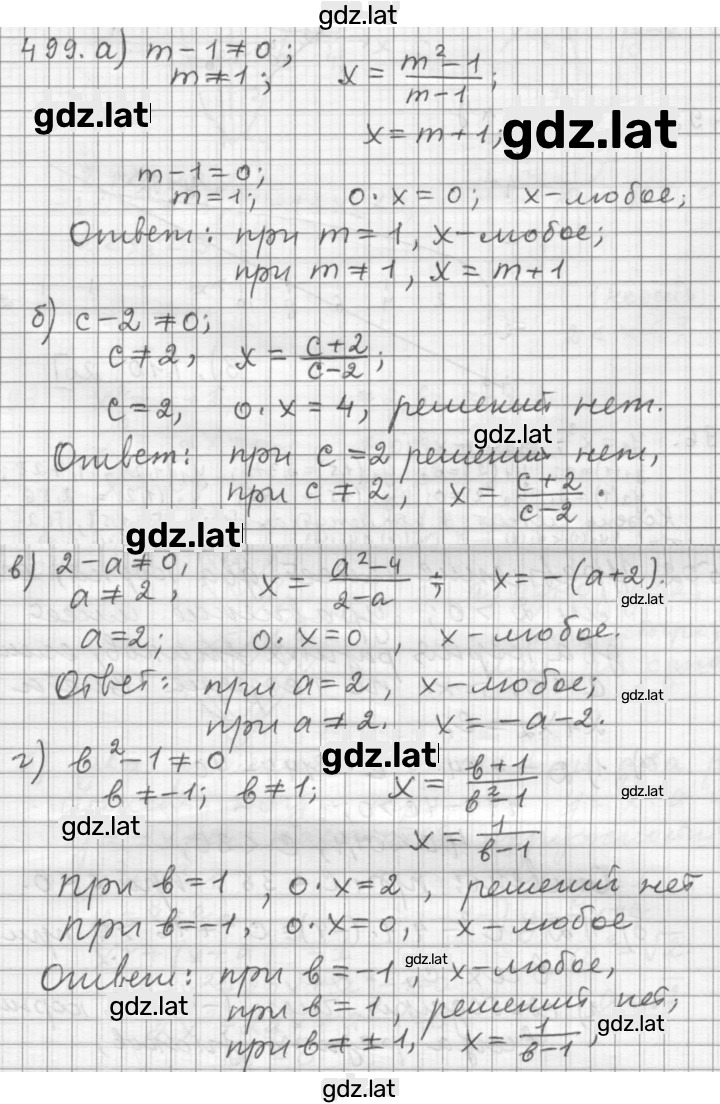 gdz.lat
499. а) m - 1 ≠ 0;
m ≠ 1; x = (m² - 1)/(m - 1);
gdz.lat gdz.lat
x = m + 1;
m - 1 = 0;
m = 1; 0 · x = 0; x - любое;
Ответ: при m = 1, x - любое;
при m ≠ 1, x = m + 1
б) c - 2 ≠ 0;
c ≠ 2, x = (c + 2)/(c - 2);
c = 2, 0 · x = 4, решений нет.
gdz.lat
Ответ: при c = 2 решений нет,
при c ≠ 2, x = (c + 2)/(c - 2).
gdz.lat
в) 2 - a ≠ 0,
a ≠ 2, x = (a² - 4)/(2 - a); x = -(a + 2).
gdz.lat
a = 2; 0 · x = 0, x - любое.
Ответ: при a = 2, x - любое;
gdz.lat
при a ≠ 2. x = -a - 2.
г) в² - 1 ≠ 0
gdz.lat
в ≠ -1; в ≠ 1; x = (в + 1)/(в² - 1)
gdz.lat
gdz.lat
x = 1/(в - 1)
при в = 1, 0 · x = 2, решений нет
при в = -1, 0 · x = 0, x - любое
gdz.lat
Ответ: при в = -1, x - любое,
gdz.lat
при в = 1, решений нет;
gdz.lat
при в ≠ ± 1, x = 1/(в - 1),
gdz.lat